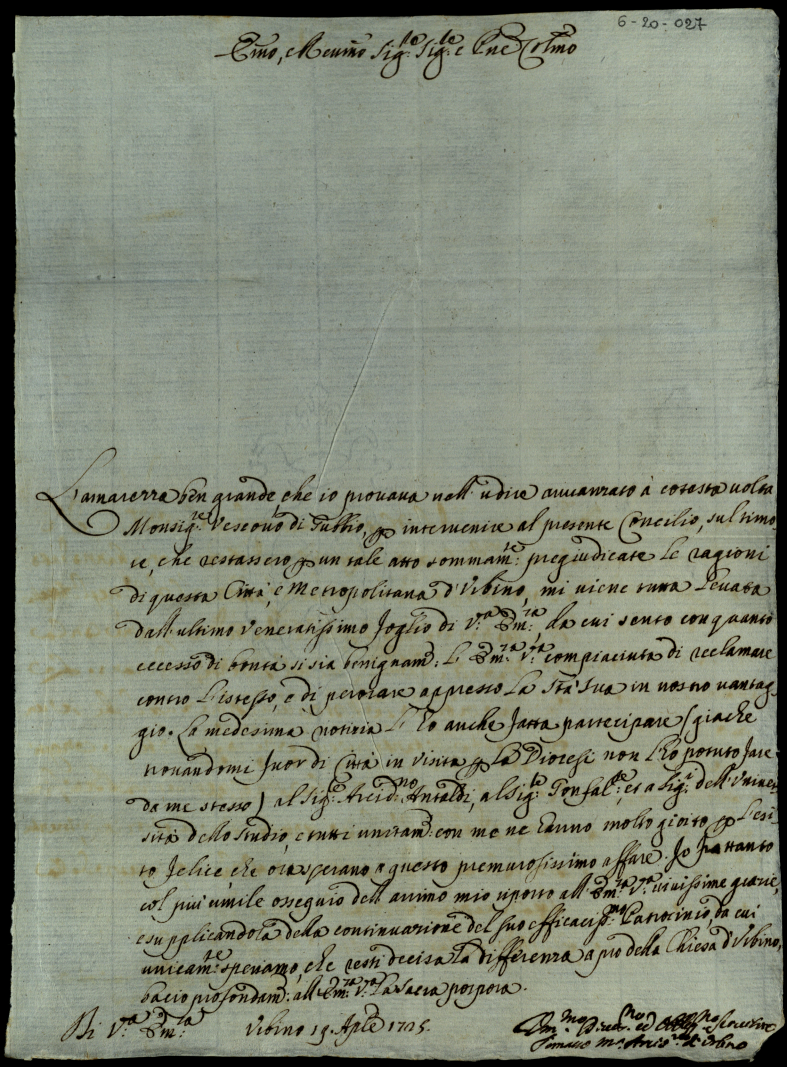 6-20-027
Emo, e Reumo Sig.re Sig.re e Pne Colmo
L'amarezza ben grande, che io provava nell'udire avvanzato à cotesta volta
Monsig.re Vescovo di Gubbio, p intervenire al presente Concilio, sul timo-
re, che restassero p un tale atto sommam.te pregiudicate le ragioni
di questa Città, e Metropolitana d'Urbino, mi viene tutta levata
dall'ultimo veneratissimo foglio di V.ra Em.za, da cui sento con quanto
eccesso di bontà si sia benignam.e l'Em.za V.ra compiaciuta di reclamare
contro l'istesso, e di perorare appresso la Stà Sua in nostro vantag-
gio. La medesima notizia l'ho anche fatta partecipare (giache
trovandomi fuor di Città in visita p la Diocesi non l'hò potuto fare
da me stesso) al Sig.re Arcid.no Antaldi, al Sig.re Gonfal.re, et a Sig.ri dell'Univer-
sità dello Studio, e tutti unitam.e con me ne hanno molto gioito p l'esi-
to felice, che ora sperano a questo premurosissimo affare. Io frattanto
col più umile ossequio dell'animo mio riporto all'Em.za V.ra vivissime grazie,
e supplicandola della continuazione del suo efficaciss.mo Patrocinio, da cui
unicam.te speriamo, che resti decisa la differenza a prò della Chiesa d'Urbino,
bacio profondam.e all'Em.za V.ra la Sacra porpora.
Di V.ra Em.za
Urbino 19 Aple 1725.
Um.mo Di.mo ed Obbl.mo Servitore
Tomaso M.a Arciv.o d'Urbino